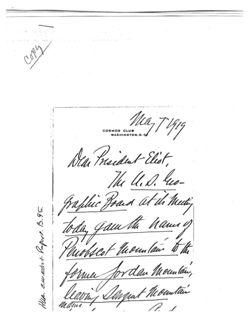 COPY
May 7 1919
COSMOS CLUB
WASHINGTON, D.C.
Dear President Eliot,
The U.S. Geo-
graphic Board at its meeting
today gave the name of
Penobscot Mountain to the
former Jordan Mountain,
leaving Sargent Mountain